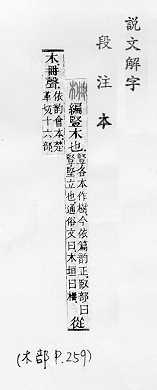 說文解字
段注本
柵 編豎木也豎各本作樹今依篇韵正臤部曰豎堅立也通俗文曰木垣曰柵從
木冊聲依韵會本楚革切十六部
(木部 P.259)